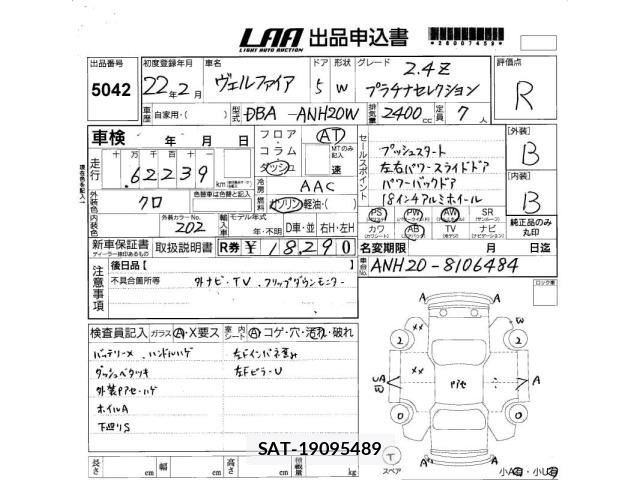 LAA 出品申込書
LIGHT AUTO AUCTION
*26007459*
出品番号 初度登録年月 車名 ドア 形状 グレード 評価点
5042 22年2月 ヴェルファイア 5 W 2.4Z プラチナセレクション R
車歴 自家用・( ) 型式 DBA-ANH20W 排気量 2400cc 定員 7人
車検 年 月 日
フロア・コラム・ダッシュ AT MTのみ記入 速
セールスポイント
プッシュスタート
左右パワースライドドア
パワーバックドア
18インチアルミホイール
[外装] B
[内装] B
現在色を記入
走行 十万 万 千 百 十
62239 km
冷房 AAC
外装色 クロ 色替車は色替と記入
燃料 ガソリン・軽油・(
内装色 外装カラーNo. 202
輸入車 モデル年式 年・不明 D車・並 右H・左H
PS PW AW SR
カワ AB TV ナビ
純正品のみ丸印
新車保証書 取扱説明書 R券 ¥18,290
ディーラー様印あるもの
名変期限 月 日迄
車台No. ANH20-8106484
注意事項
後日品 [
不具合箇所等 外ナビ・TV、フリップダウンモニター
ロック車
検査員記入 ガラス A・X要ス 室内シート A コゲ・穴・汚れ・破れ
バッテリー× ハンドルハゲ 左Fインパネ歪み
ダッシュベタツキ 左FピラーU
外装Pアセ・ハゲ
ホイルA
下廻りS
A A
×× W
2 2
UA W ×× Pアセ A
0 0
A A
T
スペア
小A有・小U有
SAT-19095489
長さ cm 幅 cm 高さ cm 積載量 kg